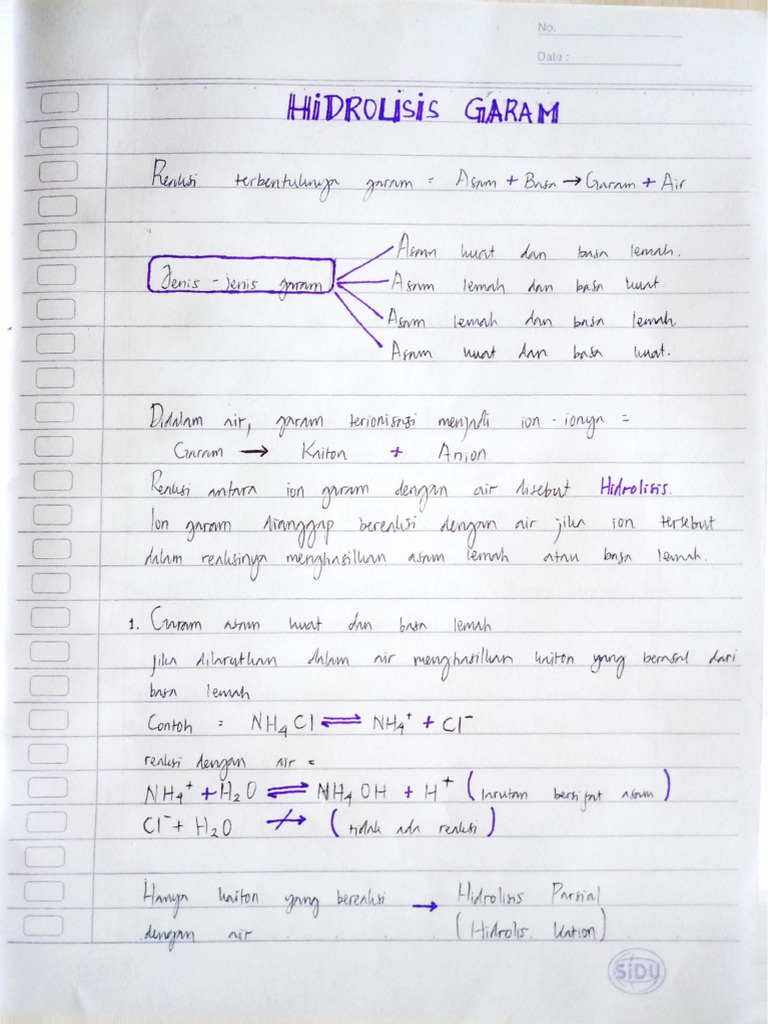 No.
Date :
HIDROLISIS GARAM
Reaksi terbentuknya garam = Asam + Basa → Garam + Air
Jenis - jenis garam
Asam kuat dan basa lemah.
Asam lemah dan basa kuat.
Asam lemah dan basa lemah.
Asam kuat dan basa kuat.
Didalam air, garam terionisasi menjadi ion - ionya =
Garam → Kaiton + Anion
Reaksi antara ion garam dengan air disebut Hidrolisis.
Ion garam dianggap bereaksi dengan air jika ion tersebut
dalam reaksinya menghasilkan asam lemah atau basa lemah.
1. Garam asam kuat dan basa lemah
jika dilarutkan dalam air menghasilkan kaiton yang berasal dari
basa lemah
Contoh = NH₄Cl ⇌ NH₄⁺ + Cl⁻
reaksi dengan air =
NH₄⁺ + H₂O ⇌ NH₄OH + H⁺ (larutan bersifat asam)
Cl⁻ + H₂O ↛ (tidak ada reaksi)
Hanya kaiton yang bereaksi → Hidrolisis Parsial
dengan air (Hidrolis Kation)
SIDU